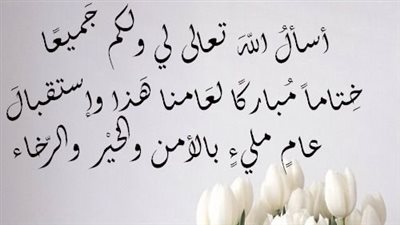 أسألُ اللهَ تعالى لي ولكم جَميعًا
خِتاماً مُباركًا لعَامنا هَذا وإستقبالَ
عامٍ مليءٍ بالأمن والخيْر والرّخاء